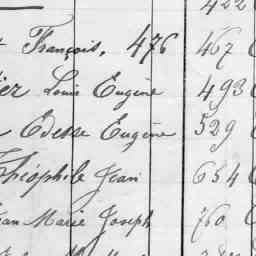 François, 476 467
Louis Eugène 493
Edesse Eugène 529
Théophile Jean 654
Jean Marie Joseph 760